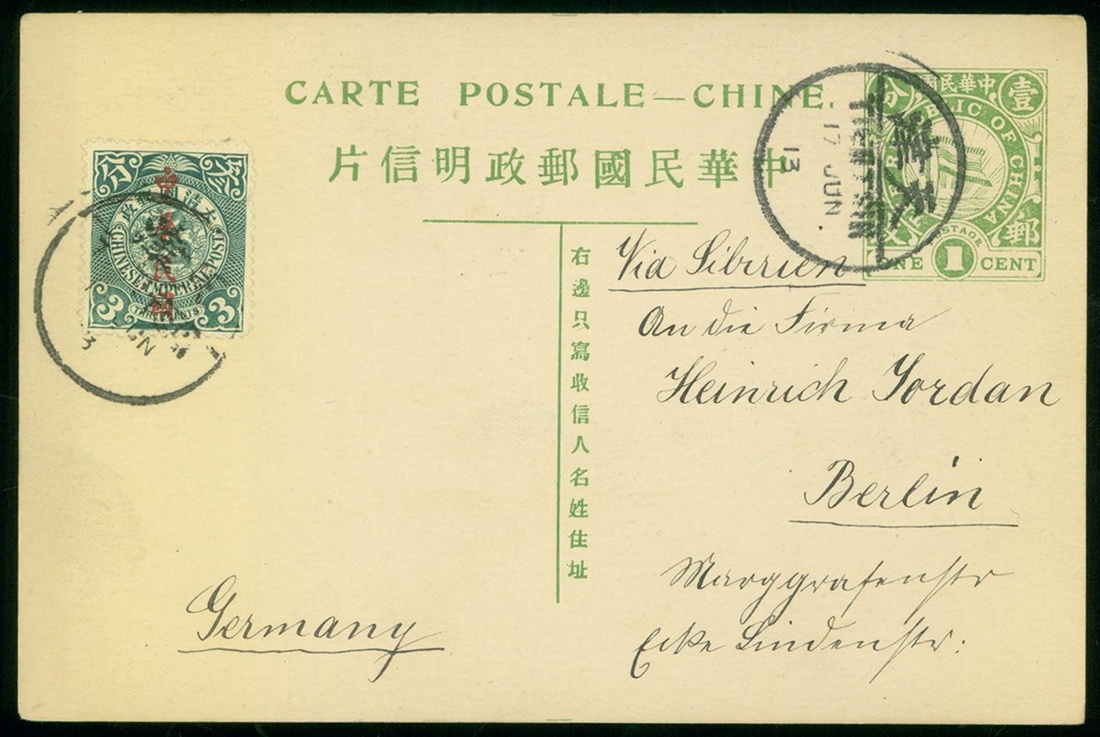 CARTE POSTALE—CHINE.
片信明政郵國民華中
右邊只寫收信人名姓住址
中華民國
壹分
郵
REPUBLIC OF CHINA
POSTAGE
ONE 1 CENT
天津
TIENTSIN
17 JUN
13
大清
郵政
CHINESE IMPERIAL POST
中華民國
3 THREE CENTS 3
Via Sibirien
An die Firma
Heinrich Jordan
Berlin
Marggrafenstr
Ecke Lindenstr:
Germany